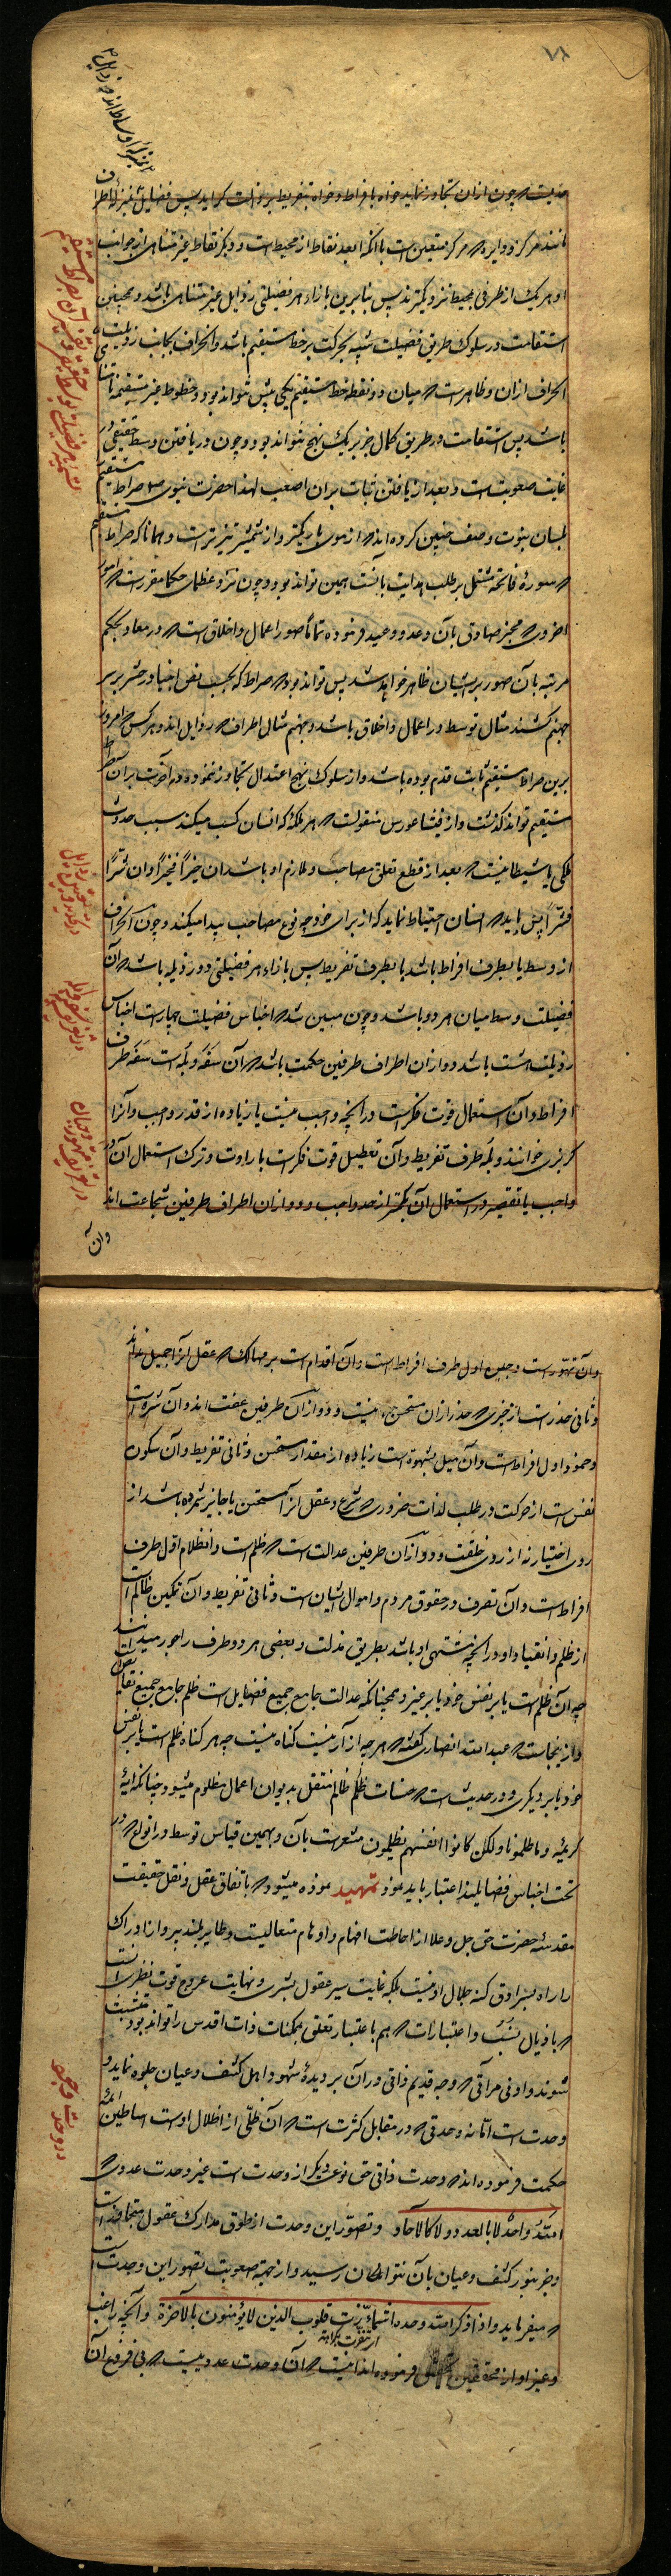 ۷۸
حدیست که چون ازان تجاوز نماید خواه بافراط و خواه بتفریط برذیلت گراید پس فضایل بمنزله
مانند مرکز دایره که مرکز متعین است با آنکه ابعد نقاط از محیط است و دیگر نقاط غیر متناهی از جوانب
او هر یک از طرفی بمحیط نزدیکترند پس بنابرین بازاء هر فضیلتی رذایل غیر متناهی باشد و همچنین
استقامت در سلوک طریق فضیلت شبیه بحرکت بر خط مستقیم باشد و انحراف بجانب رذیلت
انحراف ازان و ظاهر است که میان دو نقطه خط مستقیم یکی بیش نتواند بود و خطوط غیر مستقیم نامتناهی
باشد پس استقامت در طریق کمال جز بر یک نهج نتواند بود و چون دریافتن وسط حقیقی در
غایت صعوبت است و بعد از یافتن ثبات بران اصعب لهذا حضرت نبوی صراط مستقیم
بلسان نبوت وصف چنین کرده اند که از موی باریکتر و از شمشیر تیزتر است و همانا که صراط مستقیم
که سورهٔ فاتحه مشتمل بر طلب هدایت بآنست همین تواند بود و چون نزد عظمای حکما مقرر است که امور
اخروی که مخبر صادق بآن وعد و وعید فرموده تماماً صور اعمال و اخلاق است که در معاد بحکم
مرتبه بآن صور بر ایشان ظاهر خواهد شد پس تواند بود که صراط که بحسب نص اخبار در حشر بر سر
جهنم کشند مثال توسط در اعمال و اخلاق باشد و جهنم مثال اطراف که رذایل اند و هر کس که امروز
برین صراط مستقیم ثابت قدم بوده باشد و از سلوک نهج اعتدال تجاوز ننموده در آخرت بران صراط
مستقیم تواند گذشت و از فیثاغورس منقولست که هر ملکه که انسان کسب میکند سبب حدوث
ملکی یا شیطانیست که بعد از قطع تعلق مصاحب و ملازم او باشد ان خیراً فخیراً وان شراً
فشراً پس باید که انسان احتیاط نماید که از برای خود چه نوع مصاحب پیدا میکند و چون انحراف
از وسط یا بطرف افراط باشد یا بطرف تفریط پس بازاء هر فضیلتی دو رذیله باشد که آن
فضیلت وسط میان هر دو باشد و چون مبین شد که اجناس فضیلت چهار است اجناس
رذیلت هشت باشد دو ازان اطراف طرفین حکمت باشد که آن سفه و بله است سفه طرف
افراط و آن استعمال قوت فکر است در آنچه واجب نیست یا زیاده از قدر واجب و آنرا
گربزی خوانند و بله طرف تفریط و آن تعطیل قوت فکر است باراد‌ت و ترک استعمال آن در
واجب یا تقصیر در استعمال آن کمتر از حد واجب و دو ازان اطراف طرفین شجاعت اند
وان
وآن تهوّر است و جبن اول طرف افراط است وآن اقدام است بر مهالک که عقل آنرا جمیل نداند
و ثانی حذر است از چیزی که حذر ازان مستحسن نیست و دو ازان طرفین عفت اند و آن شره است
و خمود اول افراط است وآن میل بشهوة است زیاده از مقدار مستحسن و ثانی تفریط و آن سکون
نفس است از حرکت در طلب لذات ضروری که شرع و عقل آنرا مستحسن یا جایز شمرده باشد از
روی اختیار نه از روی خلقت و دو ازان طرفین عدالت است که ظلم است و انظلام اول طرف
افراط است وآن تصرف در حقوق مردم و اموال ایشان است و ثانی تفریط وآن تمکین ظالم است
از ظلم و انقیاد او در آنچه مشتهی او باشد بطریق مذلت و بعضی هر دو طرف را جور میدانند
چه آن ظلم است یا بر نفس خود یا بر غیر و همچنانکه عدالت جامع جمیع فضایل است ظلم جامع جمیع نقایص
و از ینجاست که عبدالله انصاری گفته که هر چه از آر نیست گناه نیست چه هر گناه ظلم است یا بر نفس
خود یا بر دیگری و در حدیث است که حسنات ظالم منتقل بدیوان اعمال مظلوم میشود چنانکه آیهٔ
کریمهٔ و ما ظلمونا ولکن کانوا انفسهم یظلمون مشعر است بآن و بهمین قیاس توسط در انواع که در
تحت اجناس فضایلند اعتبار باید نمود تمهید نموده میشود که باتفاق عقل و نقل حقیقت
مقدسهٔ حضرت حق جل و علا از احاطت افهام و اوهام متعالیست و طایر بلند پرواز ادراک
را راه بسرادق کنه جلال او نیست بلکه غایت سیر عقول بشری و نهایت عروج قوت نظری آنست
که باذیال نسب و اعتبارات که هم باعتبار تعلق بممکنات ذات اقدس را تواند بود متشبث
شوند و ادنی مرآتی که وجه قدیم ذاتی دران بر دیدهٔ شهود اهل کشف و عیان جلوه نماید
وحدت است امّا نه وحدتی که در مقابل کثرت است که آن ظلّی از اظلال اوست اساطین ائمهٔ
حکمت فرموده اند که وحدت ذاتی حق نوعی دیگر از وحدت است غیر وحدت عددی که
الله واحد لا بالعدد و لا کالآحاد و تصوّر این وحدت از طوق مدارک عقول متجاوز است
و جز بنور کشف و عیان بآن نتوان رسید و از جهت صعوبت تصور این وحدت است
که میفرماید و اذا ذکر الله وحده اشمأزّت قلوب الذین لا یؤمنون بالآخرة و آنچه
و غیر او از محققین فرموده اند که آن وحدت عددی نیست که